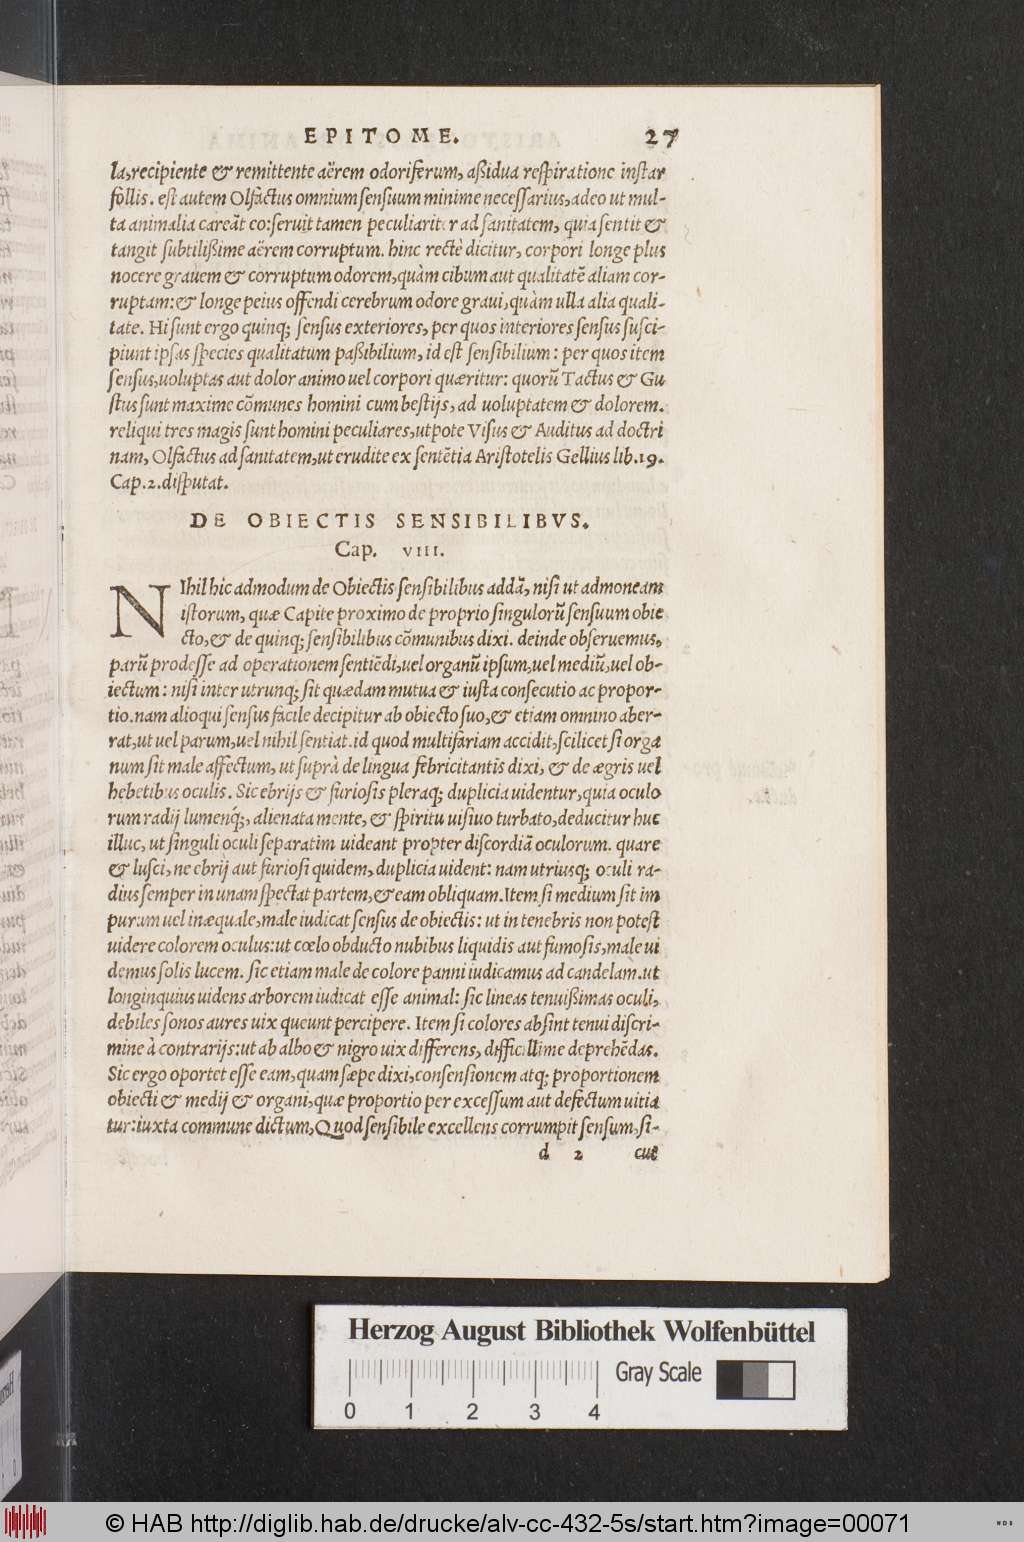 EPITOME. 27
la, recipiente & remittente aërem odoriferum, aßidua respiratione instar
follis. est autem Olfactus omnium sensuum minime necessarius, adeo ut mul-
ta animalia careãt eo: seruit tamen peculiariter ad sanitatem, quia sentit &
tangit subtilißime aërem corruptum. hinc rectè dicitur, corpori longe plus
nocere grauem & corruptum odorem, quàm cibum aut qualitatẽ aliam cor-
ruptam: & longe peius offendi cerebrum odore graui, quàm ulla alia quali-
tate. Hi sunt ergo quinq; sensus exteriores, per quos interiores sensus susci-
piunt ipsas species qualitatum paßibilium, id est sensibilium: per quos item
sensus, uoluptas aut dolor animo uel corpori quæritur: quorũ Tactus & Gu
stus sunt maxime cõmunes homini cum bestijs, ad uoluptatem & dolorem.
reliqui tres magis sunt homini peculiares, utpote Visus & Auditus ad doctri
nam, Olfactus ad sanitatem, ut erudite ex sentẽtia Aristotelis Gellius lib. 19.
Cap. 2. disputat.
DE OBIECTIS SENSIBILIBVS.
Cap. VIII.
NIhil hic admodum de Obiectis sensibilibus addã, nisi ut admoneam
istorum, quæ Capite proximo de proprio singulorũ sensuum obie
cto, & de quinq; sensibilibus cõmunibus dixi. deinde obseruemus,
parũ prodesse ad operationem sentiẽdi, uel organũ ipsum, uel mediũ, uel ob-
iectum: nisi inter utrunq; sit quædam mutua & iusta consecutio ac propor-
tio. nam alioqui sensus facile decipitur ab obiecto suo, & etiam omnino aber-
rat, ut uel parum, uel nihil sentiat. id quod multifariam accidit, scilicet si orga
num sit male affectum, ut suprà de lingua febricitantis dixi, & de ægris uel
hebetibus oculis. Sic ebrijs & furiosis pleraq; duplicia uidentur, quia oculo
rum radij lumenq́;, alienata mente, & spiritu uisiuo turbato, deducitur huc
illuc, ut singuli oculi separatim uideant propter discordiã oculorum. quare
& lusci, ne ebrij aut furiosi quidem, duplicia uident: nam utriusq; oculi ra-
dius semper in unam spectat partem, & eam obliquam. Item si medium sit im
purum uel inæquale, male iudicat sensus de obiectis: ut in tenebris non potest
uidere colorem oculus: ut cœlo obducto nubibus liquidis aut fumosis, male ui
demus solis lucem. sic etiam male de colore panni iudicamus ad candelam. ut
longinquius uidens arborem iudicat esse animal: sic lineas tenuißimas oculi,
debiles sonos aures uix queunt percipere. Item si colores absint tenui discri-
mine à contrarijs: ut ab albo & nigro uix differens, difficillime deprehẽdas.
Sic ergo oportet esse eam, quam sæpe dixi, consensionem atq; proportionem
obiecti & medij & organi, quæ proportio per excessum aut defectum uitia
tur: iuxta commune dictum, Quod sensibile excellens corrumpit sensum, si-
d 2 cut
Herzog August Bibliothek Wolfenbüttel
Gray Scale
0 1 2 3 4
© HAB http://diglib.hab.de/drucke/alv-cc-432-5s/start.htm?image=00071
WDB